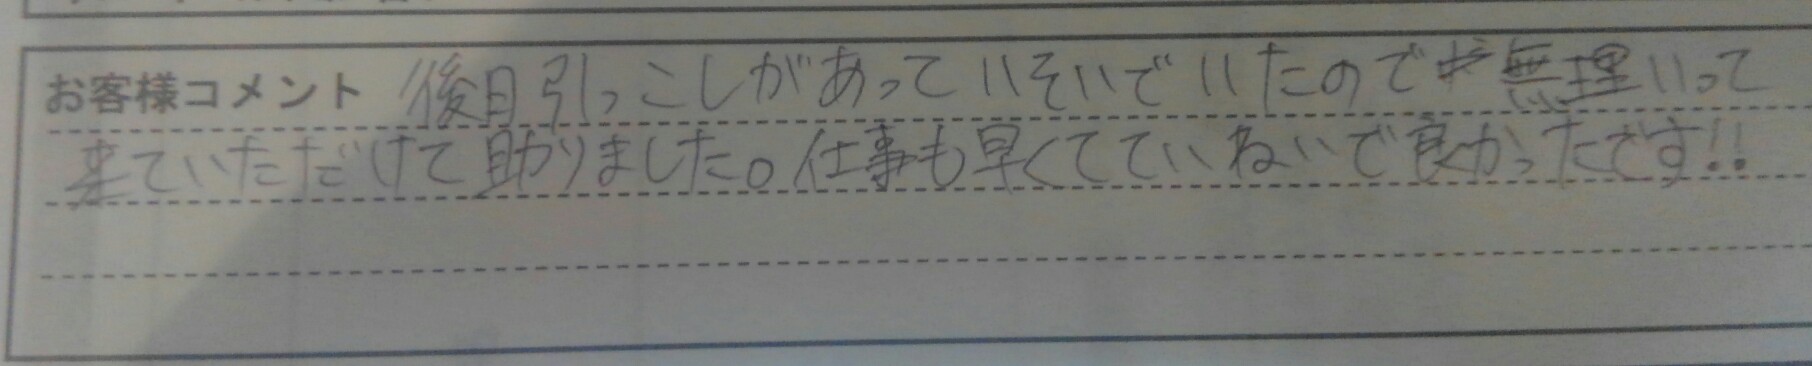 お客様コメント 後日引っこしがあっていそいでいたので無理いって
来ていただけて助かりました。仕事も早くてていねいで良かったです!!